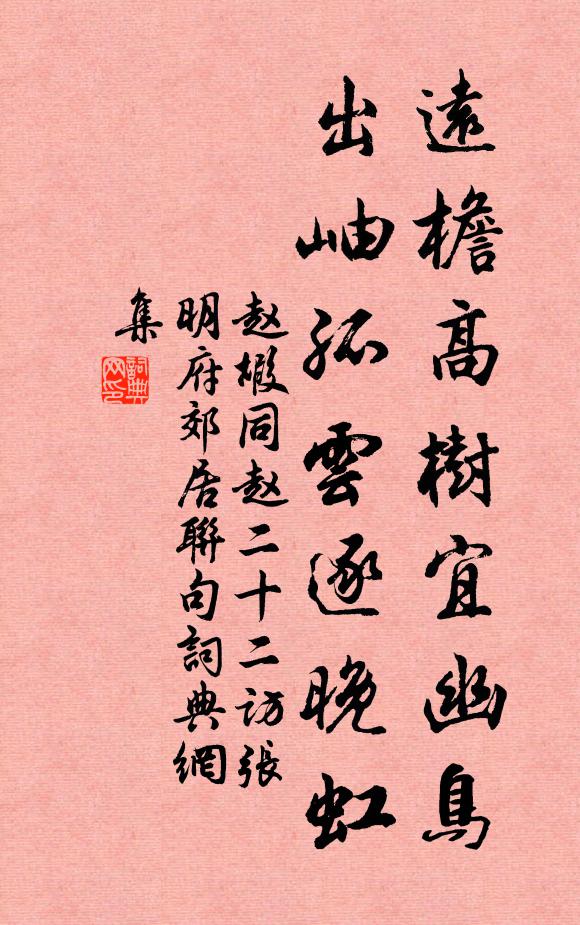 遠檐高樹宜幽鳥
出岫孤雲逐晚虹
赵嘏同赵二十二访張
明府郊居聯句詞典網
集
詞典
网印